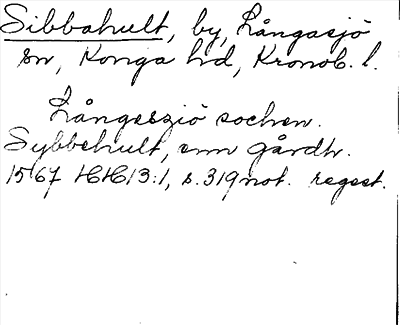 Sibbahult, by, Långasjö
sn, Konga hd, Kronob. l.
Långeszіö sochen.
Sybbehult, enn gårdh.
1567 HH13:1, s. 319 not. regest.